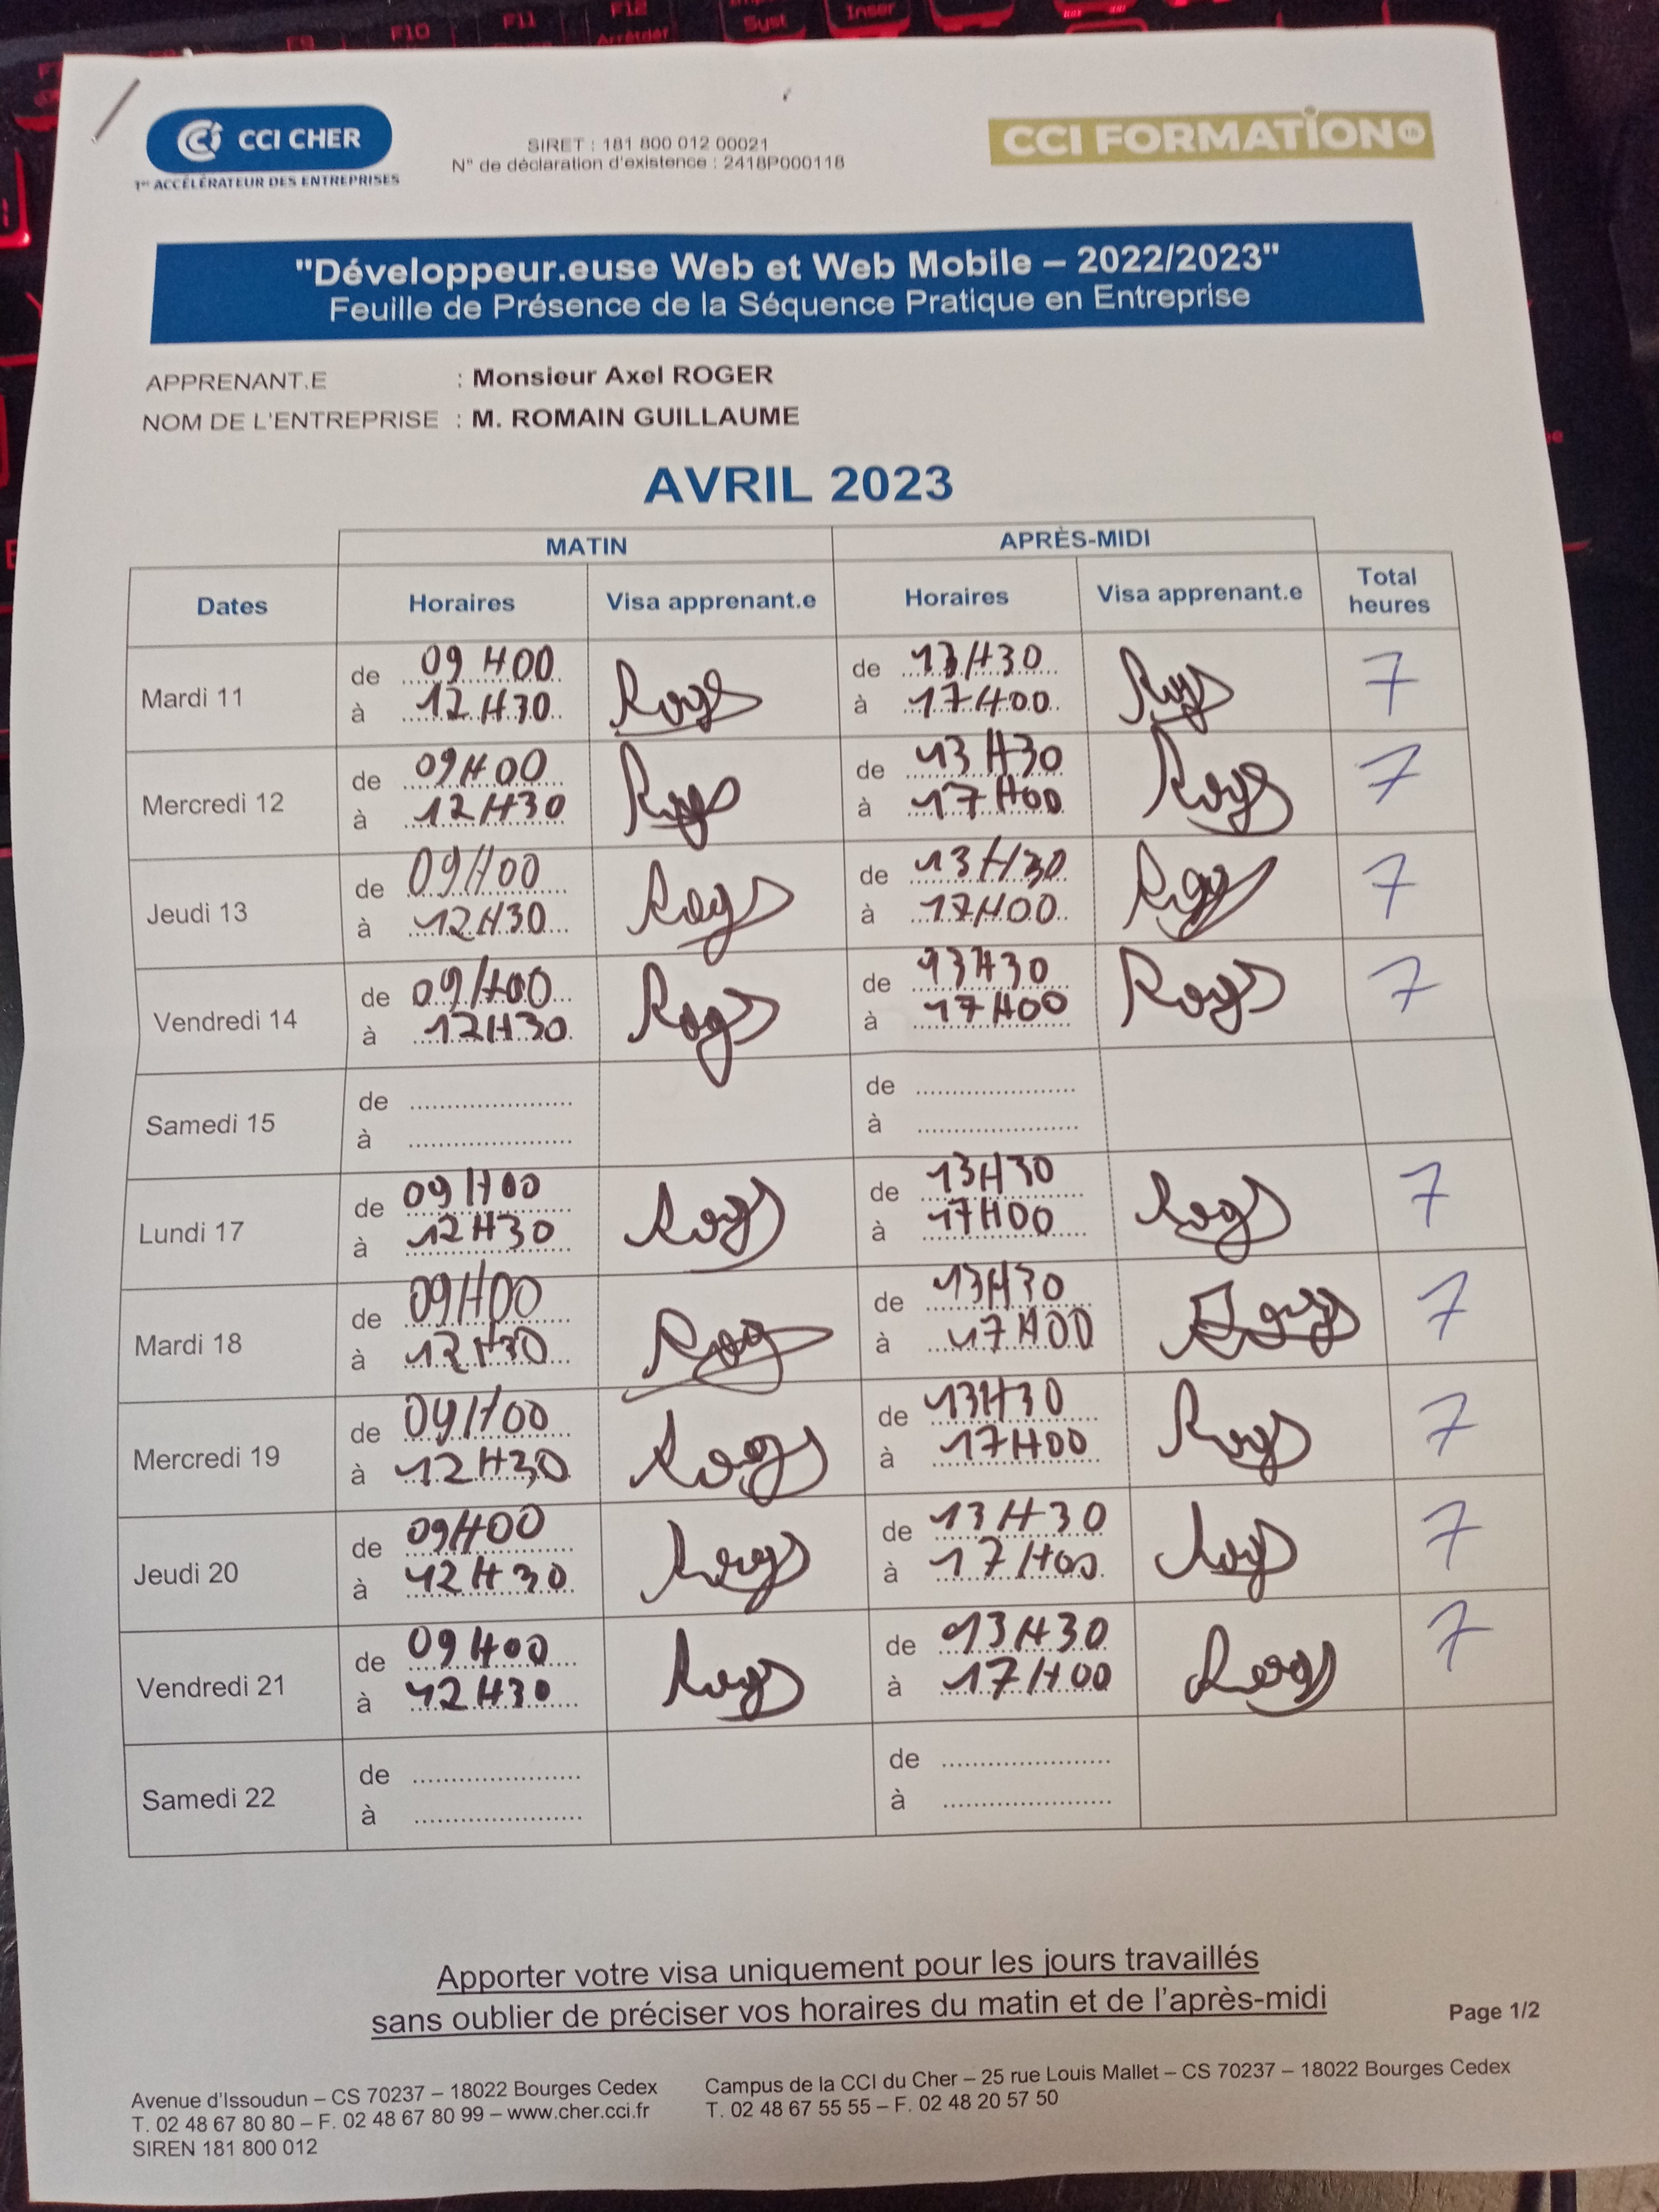 F9 F10 F11 F12 Syst Inser
Arrêtdéf
CCI CHER
1er ACCÉLÉRATEUR DES ENTREPRISES
SIRET : 181 800 012 00021
N° de déclaration d'existence : 2418P000118
CCI FORMATION 18
"Développeur.euse Web et Web Mobile – 2022/2023"
Feuille de Présence de la Séquence Pratique en Entreprise
APPRENANT.E : Monsieur Axel ROGER
NOM DE L'ENTREPRISE : M. ROMAIN GUILLAUME
AVRIL 2023
MATIN APRÈS-MIDI
Dates Horaires Visa apprenant.e Horaires Visa apprenant.e Total heures
Mardi 11 de 09H00 de 13H30 7
à 12H30 à 17H00
Mercredi 12 de 09H00 de 13H30 7
à 12H30 à 17H00
Jeudi 13 de 09H00 de 13H30 7
à 12H30 à 17H00
Vendredi 14 de 09H00 de 13H30 7
à 12H30 à 17H00
Samedi 15 de ........................ de ........................
à ........................ à ........................
Lundi 17 de 09H00 de 13H30 7
à 12H30 à 17H00
Mardi 18 de 09H00 de 13H30 7
à 12H30 à 17H00
Mercredi 19 de 09H00 de 13H30 7
à 12H30 à 17H00
Jeudi 20 de 09H00 de 13H30 7
à 12H30 à 17H00
Vendredi 21 de 09H00 de 13H30 7
à 12H30 à 17H00
Samedi 22 de ........................ de ........................
à ........................ à ........................
Apporter votre visa uniquement pour les jours travaillés
sans oublier de préciser vos horaires du matin et de l'après-midi
Page 1/2
Avenue d'Issoudun – CS 70237 – 18022 Bourges Cedex
T. 02 48 67 80 80 – F. 02 48 67 80 99 – www.cher.cci.fr
SIREN 181 800 012
Campus de la CCI du Cher – 25 rue Louis Mallet – CS 70237 – 18022 Bourges Cedex
T. 02 48 67 55 55 – F. 02 48 20 57 50